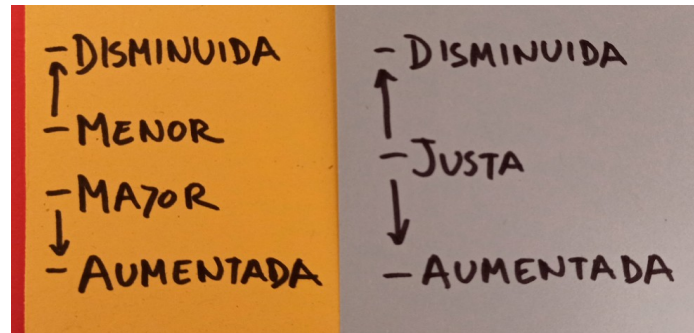 - DISMINUIDA
- MENOR
- MAYOR
- AUMENTADA
- DISMINUIDA
- JUSTA
- AUMENTADA